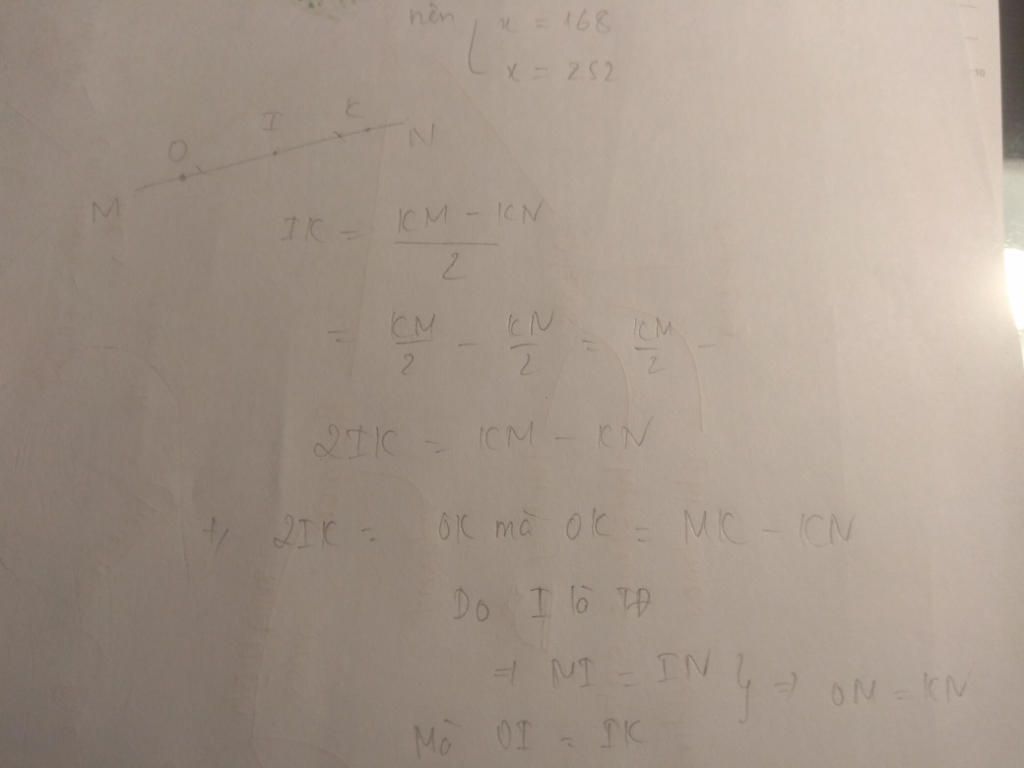 nên { x = 168
x = 252
O I K
M N
IK = (KM - KN)/2
= KM/2 - KN/2 = KM/2 -
2IK = KM - KN
+, 2IK = OK mà OK = MK - KN
Do I là TĐ
=> MI = IN } => OM = KN
Mà OI = IK